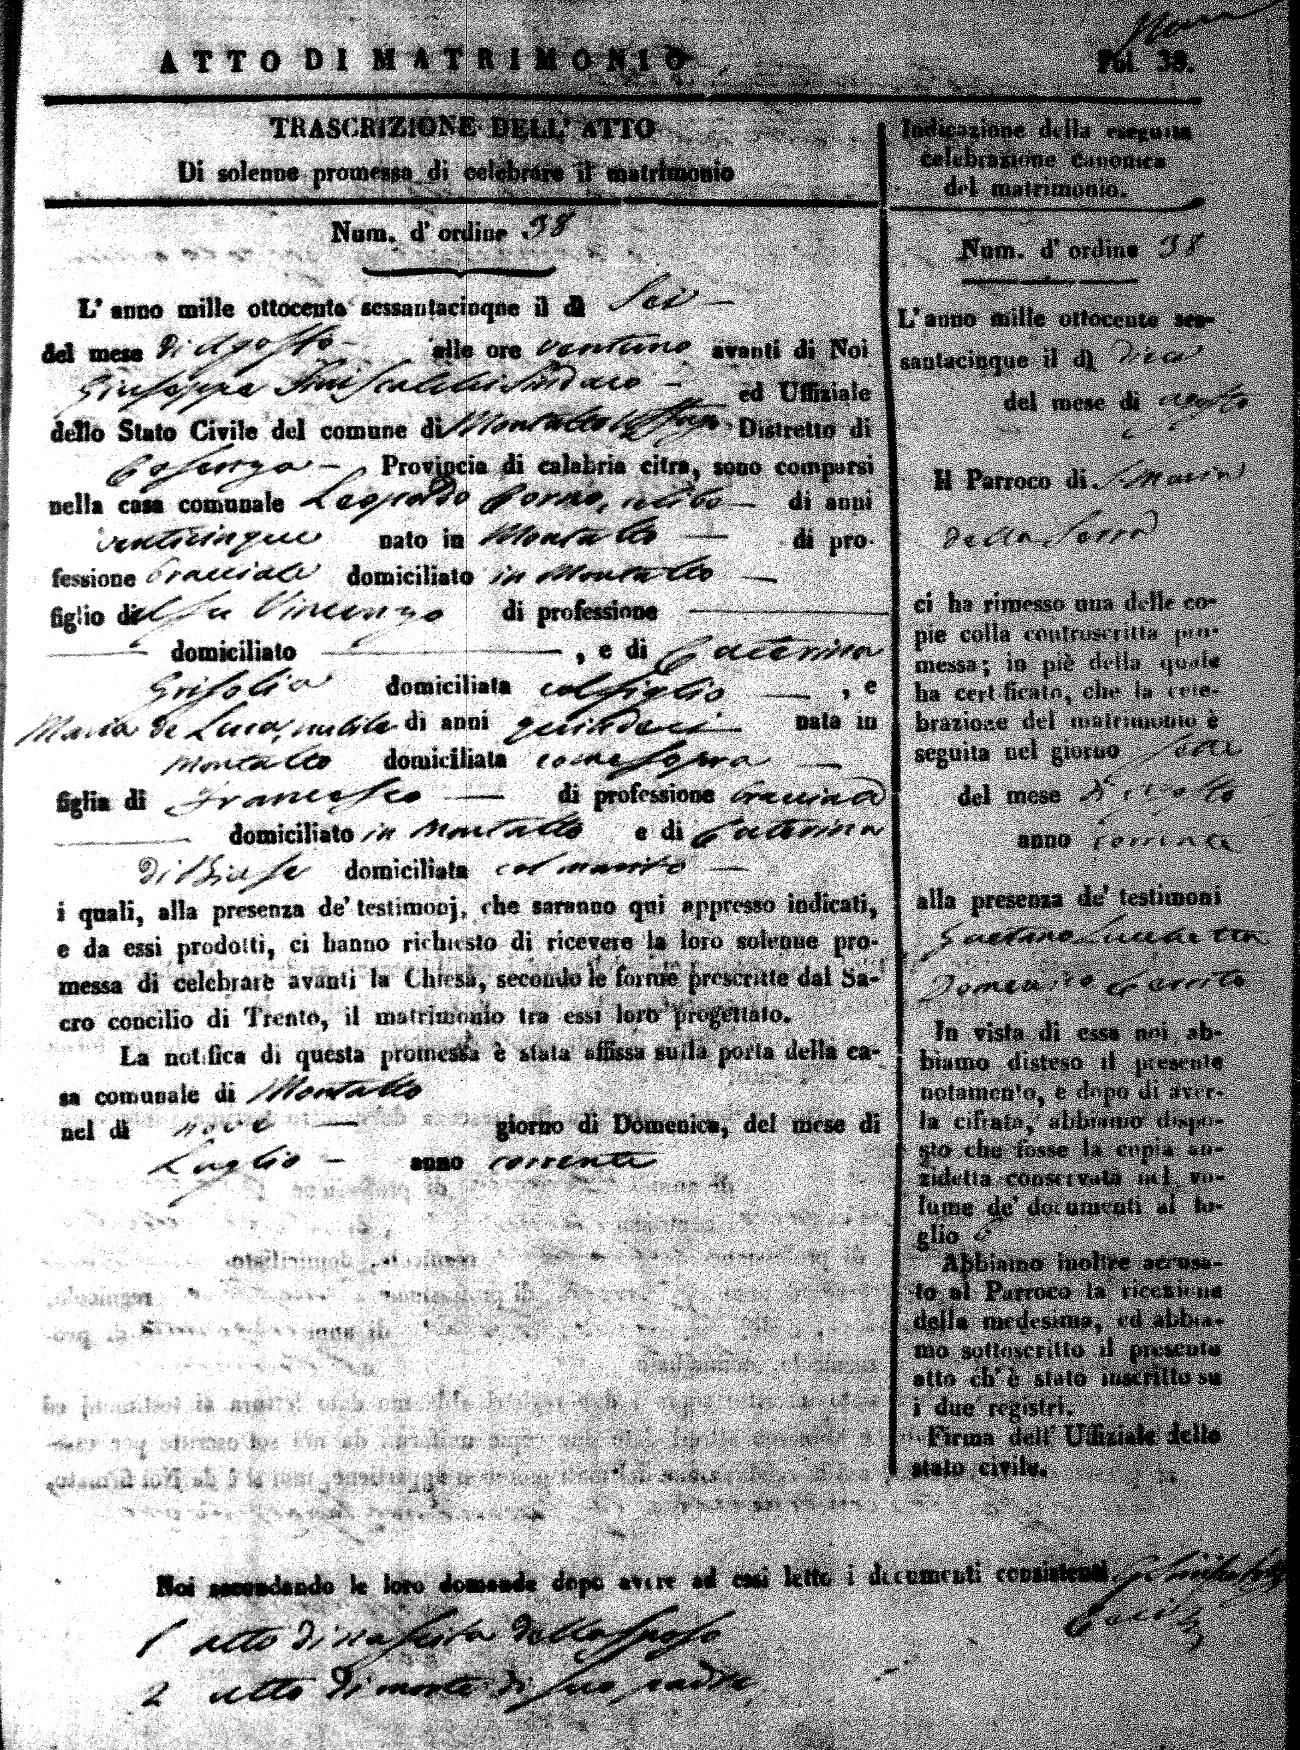 ATTO DI MATRIMONIO
Fol. 38.
TRASCRIZIONE DELL' ATTO
Di solenne promessa di celebrare il matrimonio
Num. d' ordine 38
L' anno mille ottocento sessantacinque il dì Sei
del mese di Agosto alle ore ventuno avanti di Noi
Giuseppe Sindaco ed Uffiziale
dello Stato Civile del comune di Montalto Uffugo Distretto di
Cosenza, Provincia di calabria citra, sono comparsi
nella casa comunale Leopoldo Corno, celibe di anni
venticinque nato in Montalto di pro-
fessione bracciale domiciliato in Montalto
figlio del fu Vincenzo di professione
domiciliato , e di Caterina
Grisolia domiciliata col figlio , e
Maria de Luca, nubile di anni quindeci nata in
Montalto domiciliata come sopra
figlia di Francesco di professione bracciale
domiciliato in Montalto e di Caterina
Di Biase domiciliata col marito
i quali, alla presenza de' testimonj, che saranno qui appresso indicati,
e da essi prodotti, ci hanno richiesto di ricevere la loro solenne pro-
messa di celebrare avanti la Chiesa, secondo le forme prescritte dal Sa-
cro concilio di Trento, il matrimonio tra essi loro progettato.
La notifica di questa promessa è stata affissa sulla porta della ca-
sa comunale di Montalto
nel dì nove giorno di Domenica, del mese di
Luglio anno corrente
Noi secondando le loro domande dopo avere ad essi letto i documenti consistenti
1 atto di nascita dello sposo
2 atto di morte di suo padre
Indicazione della eseguita
celebrazione canonica
del matrimonio.
Num. d' ordine 38
L' anno mille ottocento ses-
santacinque il dì dieci
del mese di agosto
Il Parroco di S. Maria
della Serra
ci ha rimesso una delle co-
pie colla controscritta pro-
messa; in piè della quale
ha certificato, che la cele-
brazione del matrimonio è
seguita nel giorno sette
del mese d'Agosto
anno corrente
alla presenza de' testimoni
Gaetano
Domenico
In vista di essa noi ab-
biamo disteso il presente
notamento, e dopo di aver-
la cifrata, abbiamo dispo-
sto che fosse la copia an-
zidetta conservata nel vo-
lume de' documenti al fo-
glio 6
Abbiamo inoltre accusa-
to al Parroco la ricezione
della medesima, ed abbia-
mo sottoscritto il presente
atto ch' è stato inscritto su
i due registri.
Firma dell' Uffiziale dello
stato civile.